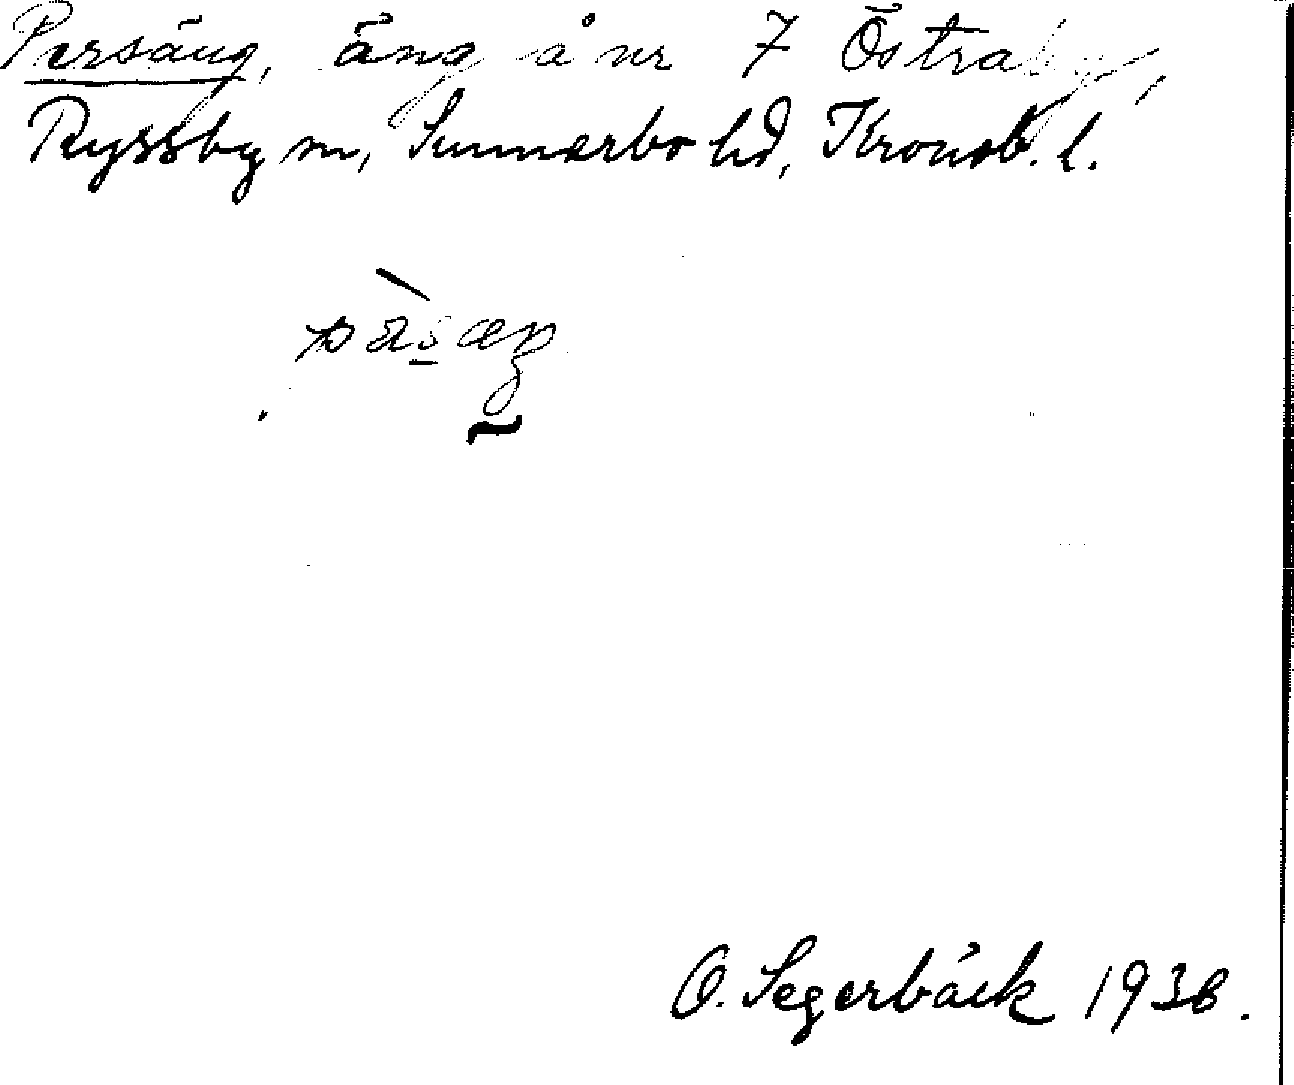 Persäng, äng å nr 7 Östraby,
Ryssby sn, Sunnerbo hd, Kronob. l.
O. Segerbäck 1936.